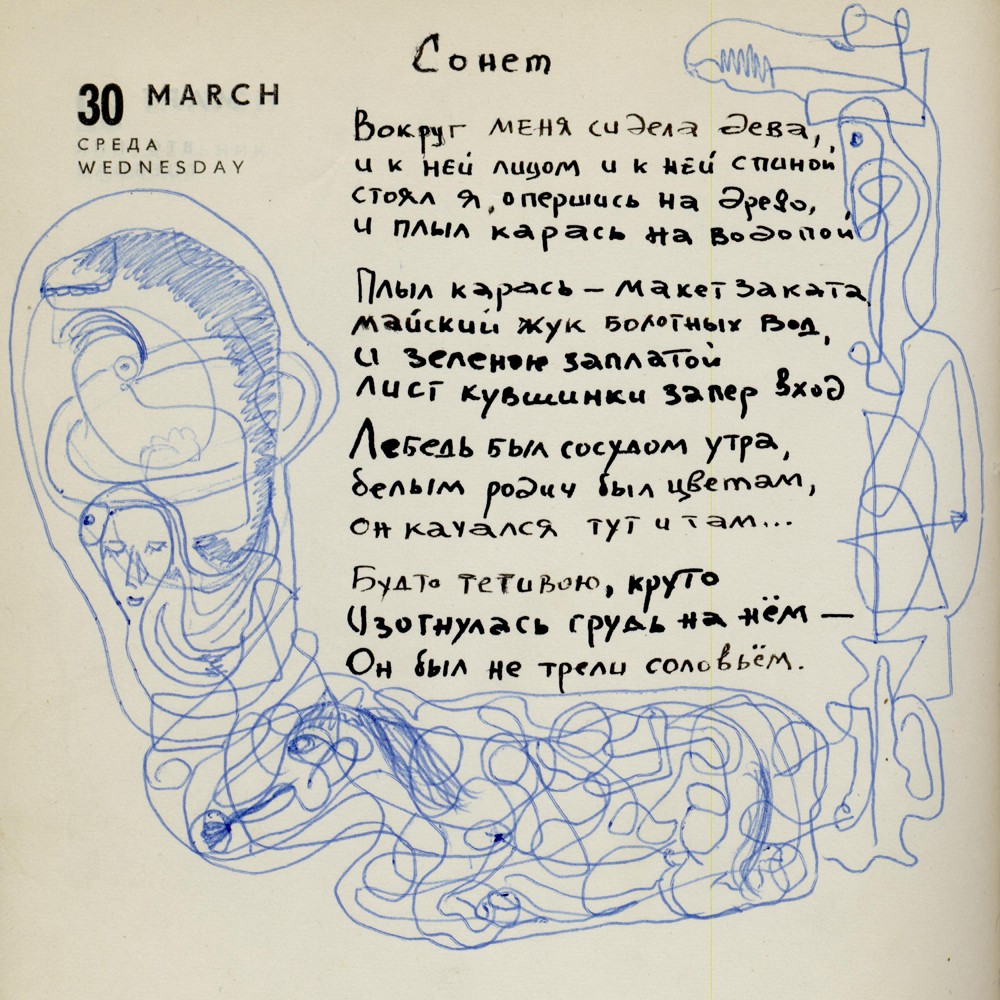 30 MARCH
СРЕДА
WEDNESDAY
Сонет
Вокруг меня сидела дева,
и к ней лицом и к ней спиной
стоял я, опершись на древо,
и плыл карась на водопой
Плыл карась – макет заката,
майский жук болотных вод,
И зеленою заплатой
лист кувшинки запер вход
Лебедь был сосудом утра,
белым родич был цветам,
он качался тут и там...
Будто тетивою, круто
Изогнулась грудь на нём —
Он был не трели соловьём.